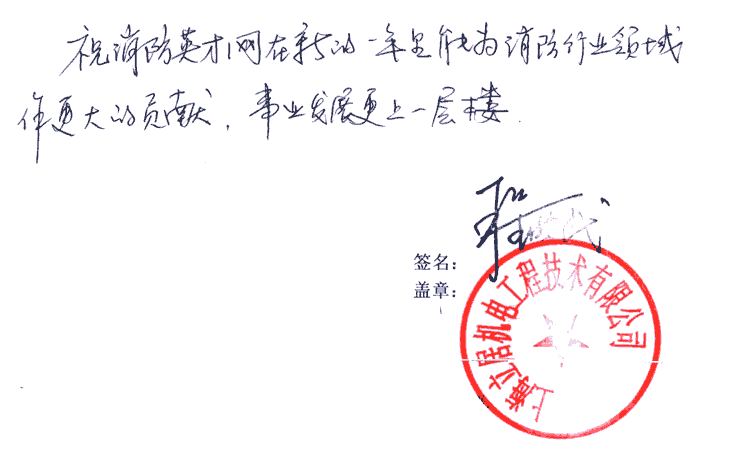 祝消防英才网在新的一年里能为消防行业领域
作更大的贡献，事业发展更上一层楼.
签名：
盖章：
上海立居机电工程技术有限公司